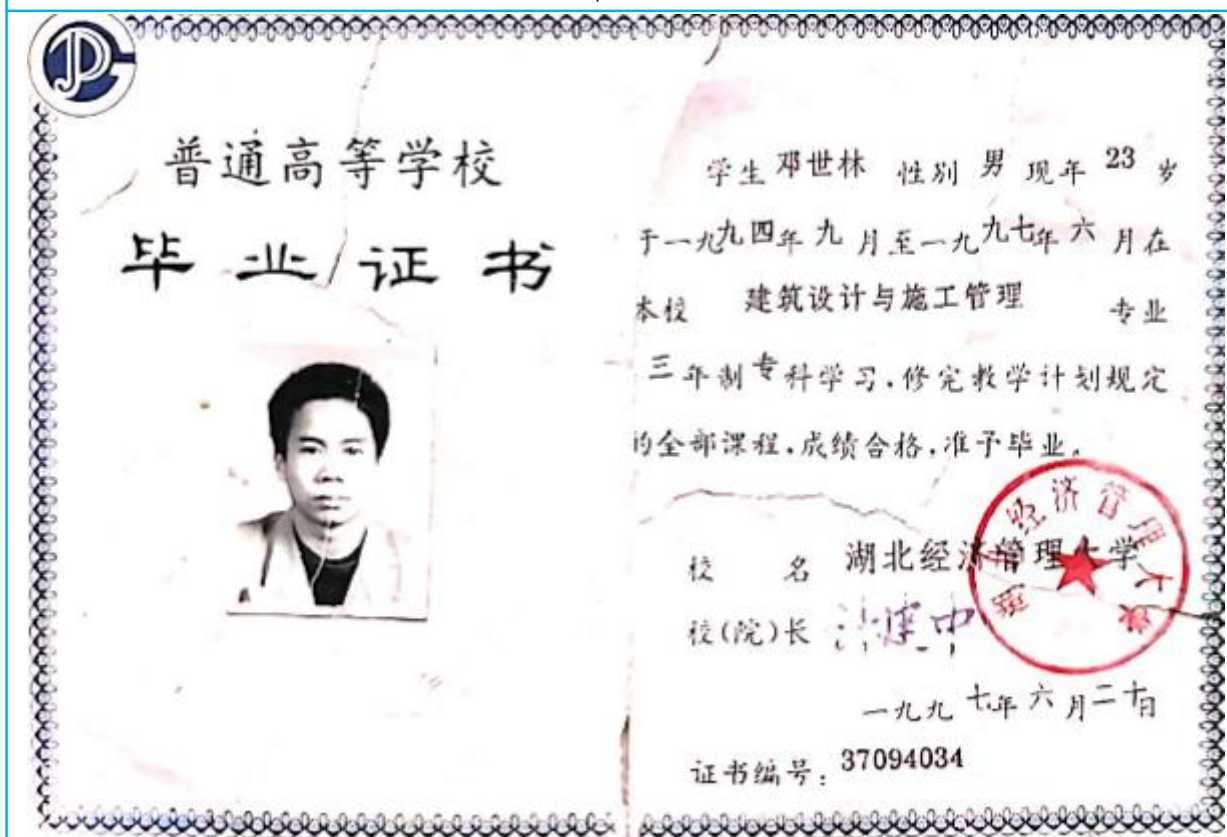 普通高等学校
毕业证书
学生 邓世林 性别 男 现年 23 岁
于一九九四年九月至一九九七年六月在
本校 建筑设计与施工管理 专业
三年制专科学习,修完教学计划规定
的全部课程,成绩合格,准予毕业。
校 名 湖北经济管理大学
校(院)长
一九九七年六月二十日
证书编号:37094034